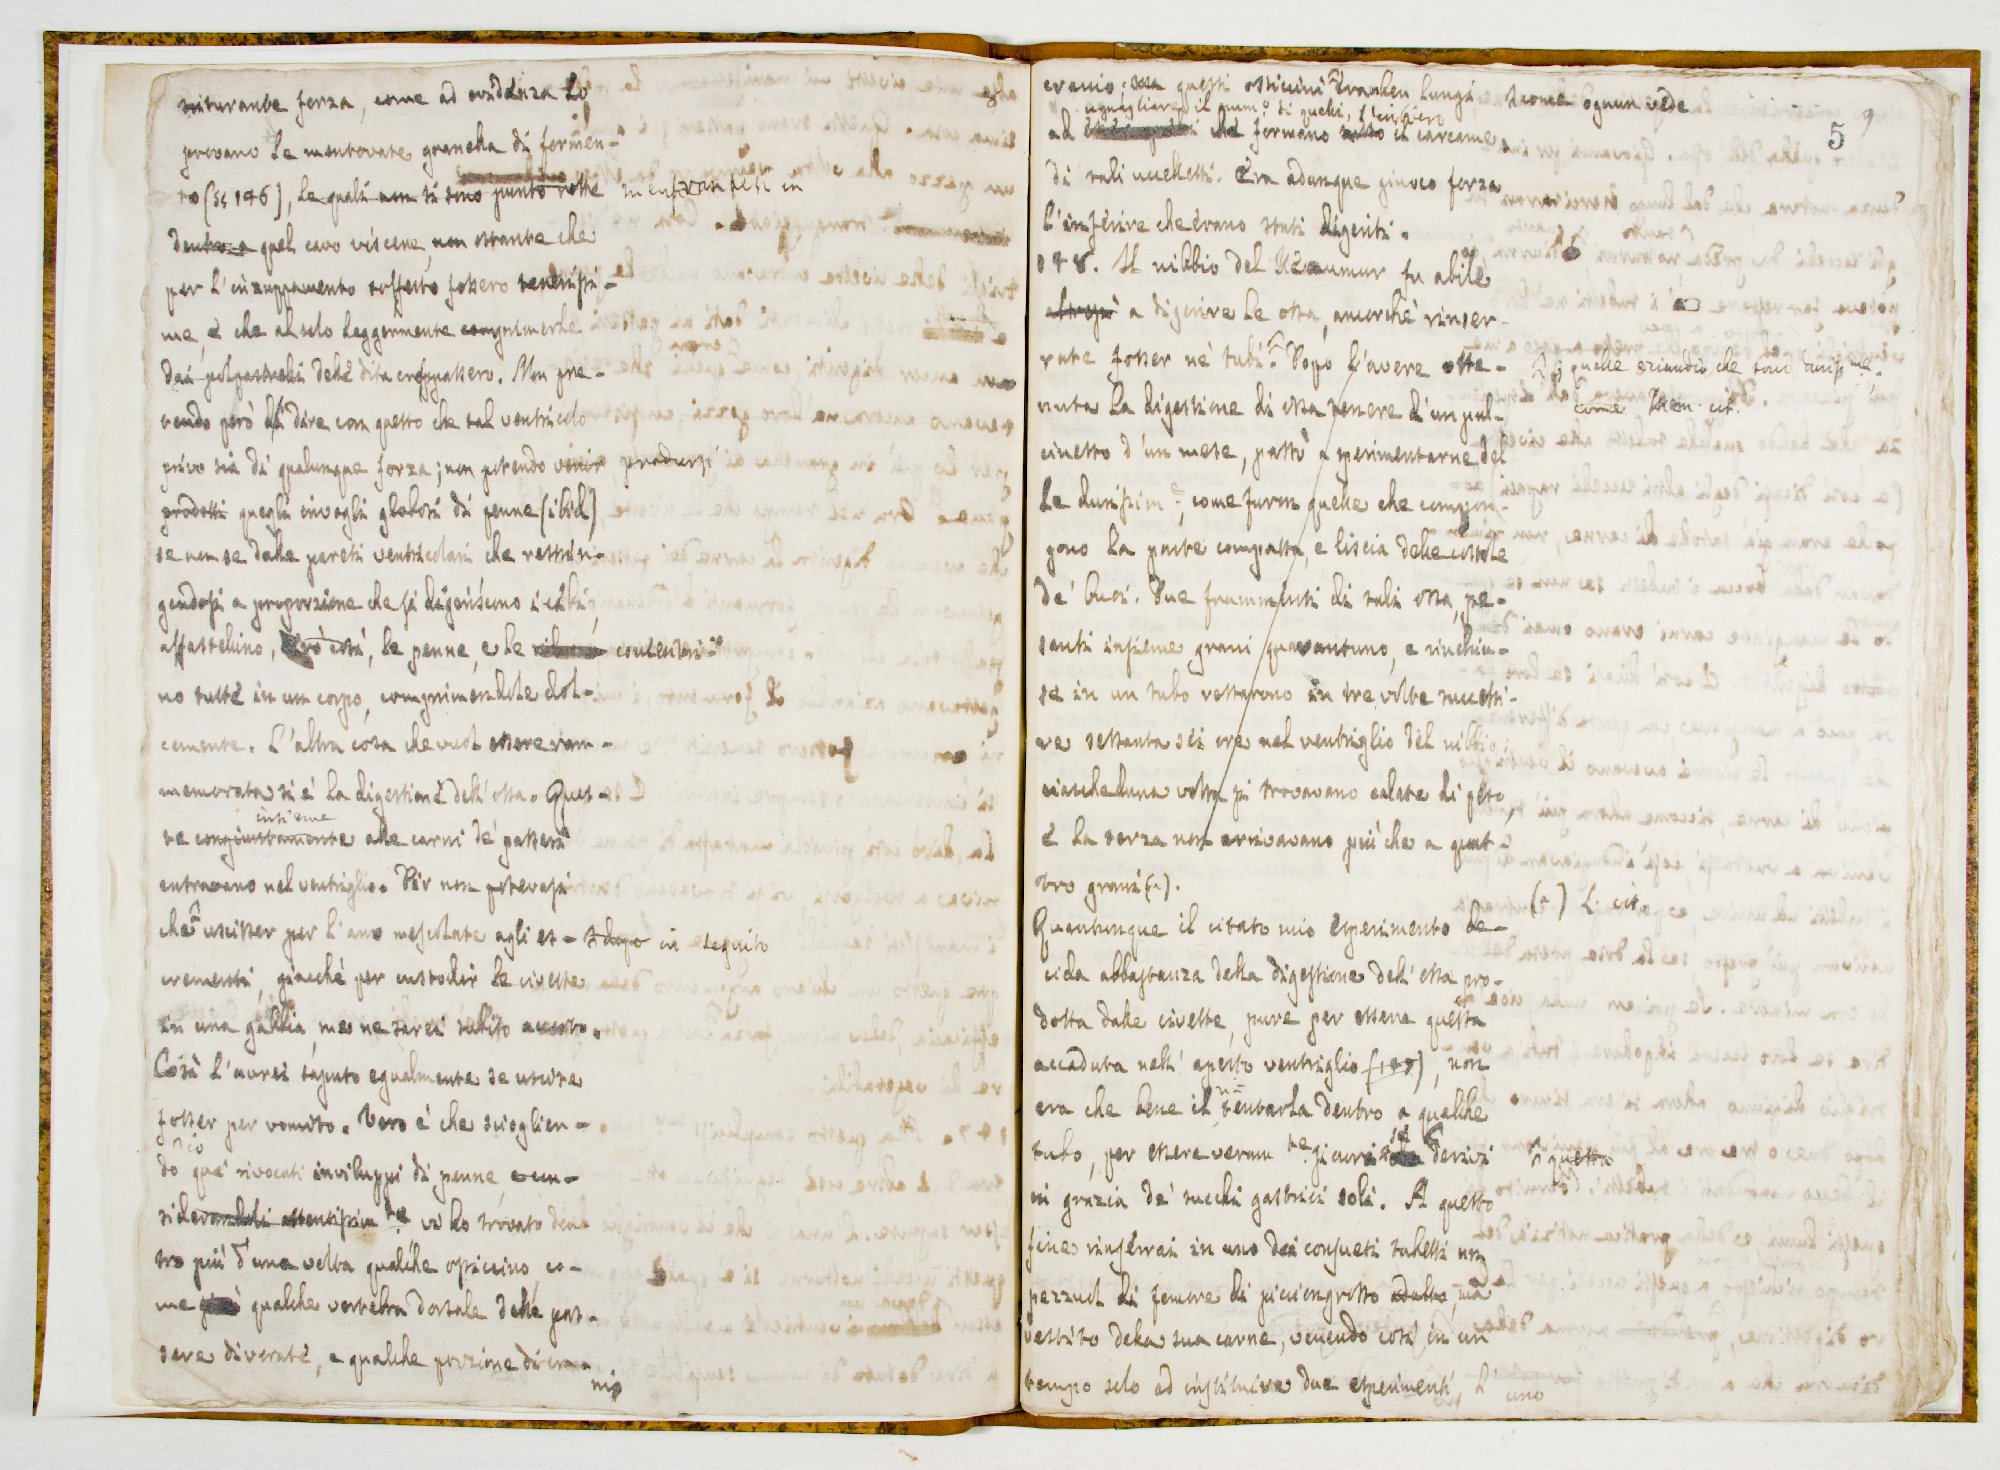 triturante forza, come ad evidenza lo
provano le mentovate granella di formen-
to (§§ 146), le quali non si sono punto rotte
dentro a quel cavo viscere, non ostante che
per l'inzuppamento sofferto fossero tenerissi-
me, e che al solo leggermente comprimerle
dai polpastrelli delle dita crepassero. Non pre-
tendo però di dire con questo che tal ventricolo
privo sia di qualunque forza; non potendo venir prodursi
prodotti quegli invogli globosi di penne (ibid)
se non se dalle pareti ventricolari che restrin-
gendosi a proporzione che si digeriscono i cibi,
affastellino, così, le penne, e le
no tutte in un corpo, comprimendole dol-
cemente. L'altra cosa che vuol essere ram-
memorata si è la digestione dell' ossa. Ques-
insieme
te congiuntamente alle carni de' passeri
entravano nel ventriglio. Dir non potevasi
che uscisser per l'ano mescolate agli es- in seguito
crementi, giacchè per custodir le civette
in una gabbia, me ne sarei subito accorto.
Così l'avrei saputo egualmente se uscite
fosser per vomito. Vero è che scioglien-
do que' rivocati inviluppi di penne, e con-
siderandoli attentissim te vi ho trovato den-
tro più d'una volta qualche ossiccino, co-
me qualche vertebra dorsale delle pas-
sere divorate, e qualche porzione di cra-
nio
cranio: ma questi ossiccini eran ben lungi siccome ognun vede
uguagliare il num.o di quelli,
ad che formano tutto il carcame
di tali uccelletti. Era adunque giuoco forza
l'inferire che erano stati digeriti.
148. Il nibbio del Reaumur fu abile
a digerire le ossa, ancorchè rinser-
rate fosser ne' tubi. Dopo l'avere otte-
quelle eziandio che sono duriss me.
nuta la digestione di ossa tenere d'un pul-
cinetto d'un mese, passò a sperimentarne del-
le durissim e, come furon quelle che compon-
gono la parte compatta, e liscia delle costole
de' buoi. Due frammenti di tali ossa, pe-
santi insieme grani quarantuno, e rinchiu-
se in un tubo restarono in tre volte successi-
ve settanta sei ore nel ventriglio del nibbio;
ciascheduna volta si trovavano calate di peso,
e la terza non arrivavano più che a quat-
tro grani (a).
(a) L. cit.
Quantunque il citato mio esperimento de-
cida abbastanza della digestione dell' ossa pro-
dotta dalle civette, pure per essere questa
accaduta nell' aperto ventriglio (147), non
era che bene il tentarla dentro a qualche
tubo, per essere veram te sicuri se derivi
in grazia de' succhi gastrici soli. A questo
fine rinserrai in uno dei consueti tubetti un
pezzuol di femore di piccion grosso adulto, ma
vestito della sua carne, venendo così in un
tempo solo ad instituire due esperimenti, l'
uno
5